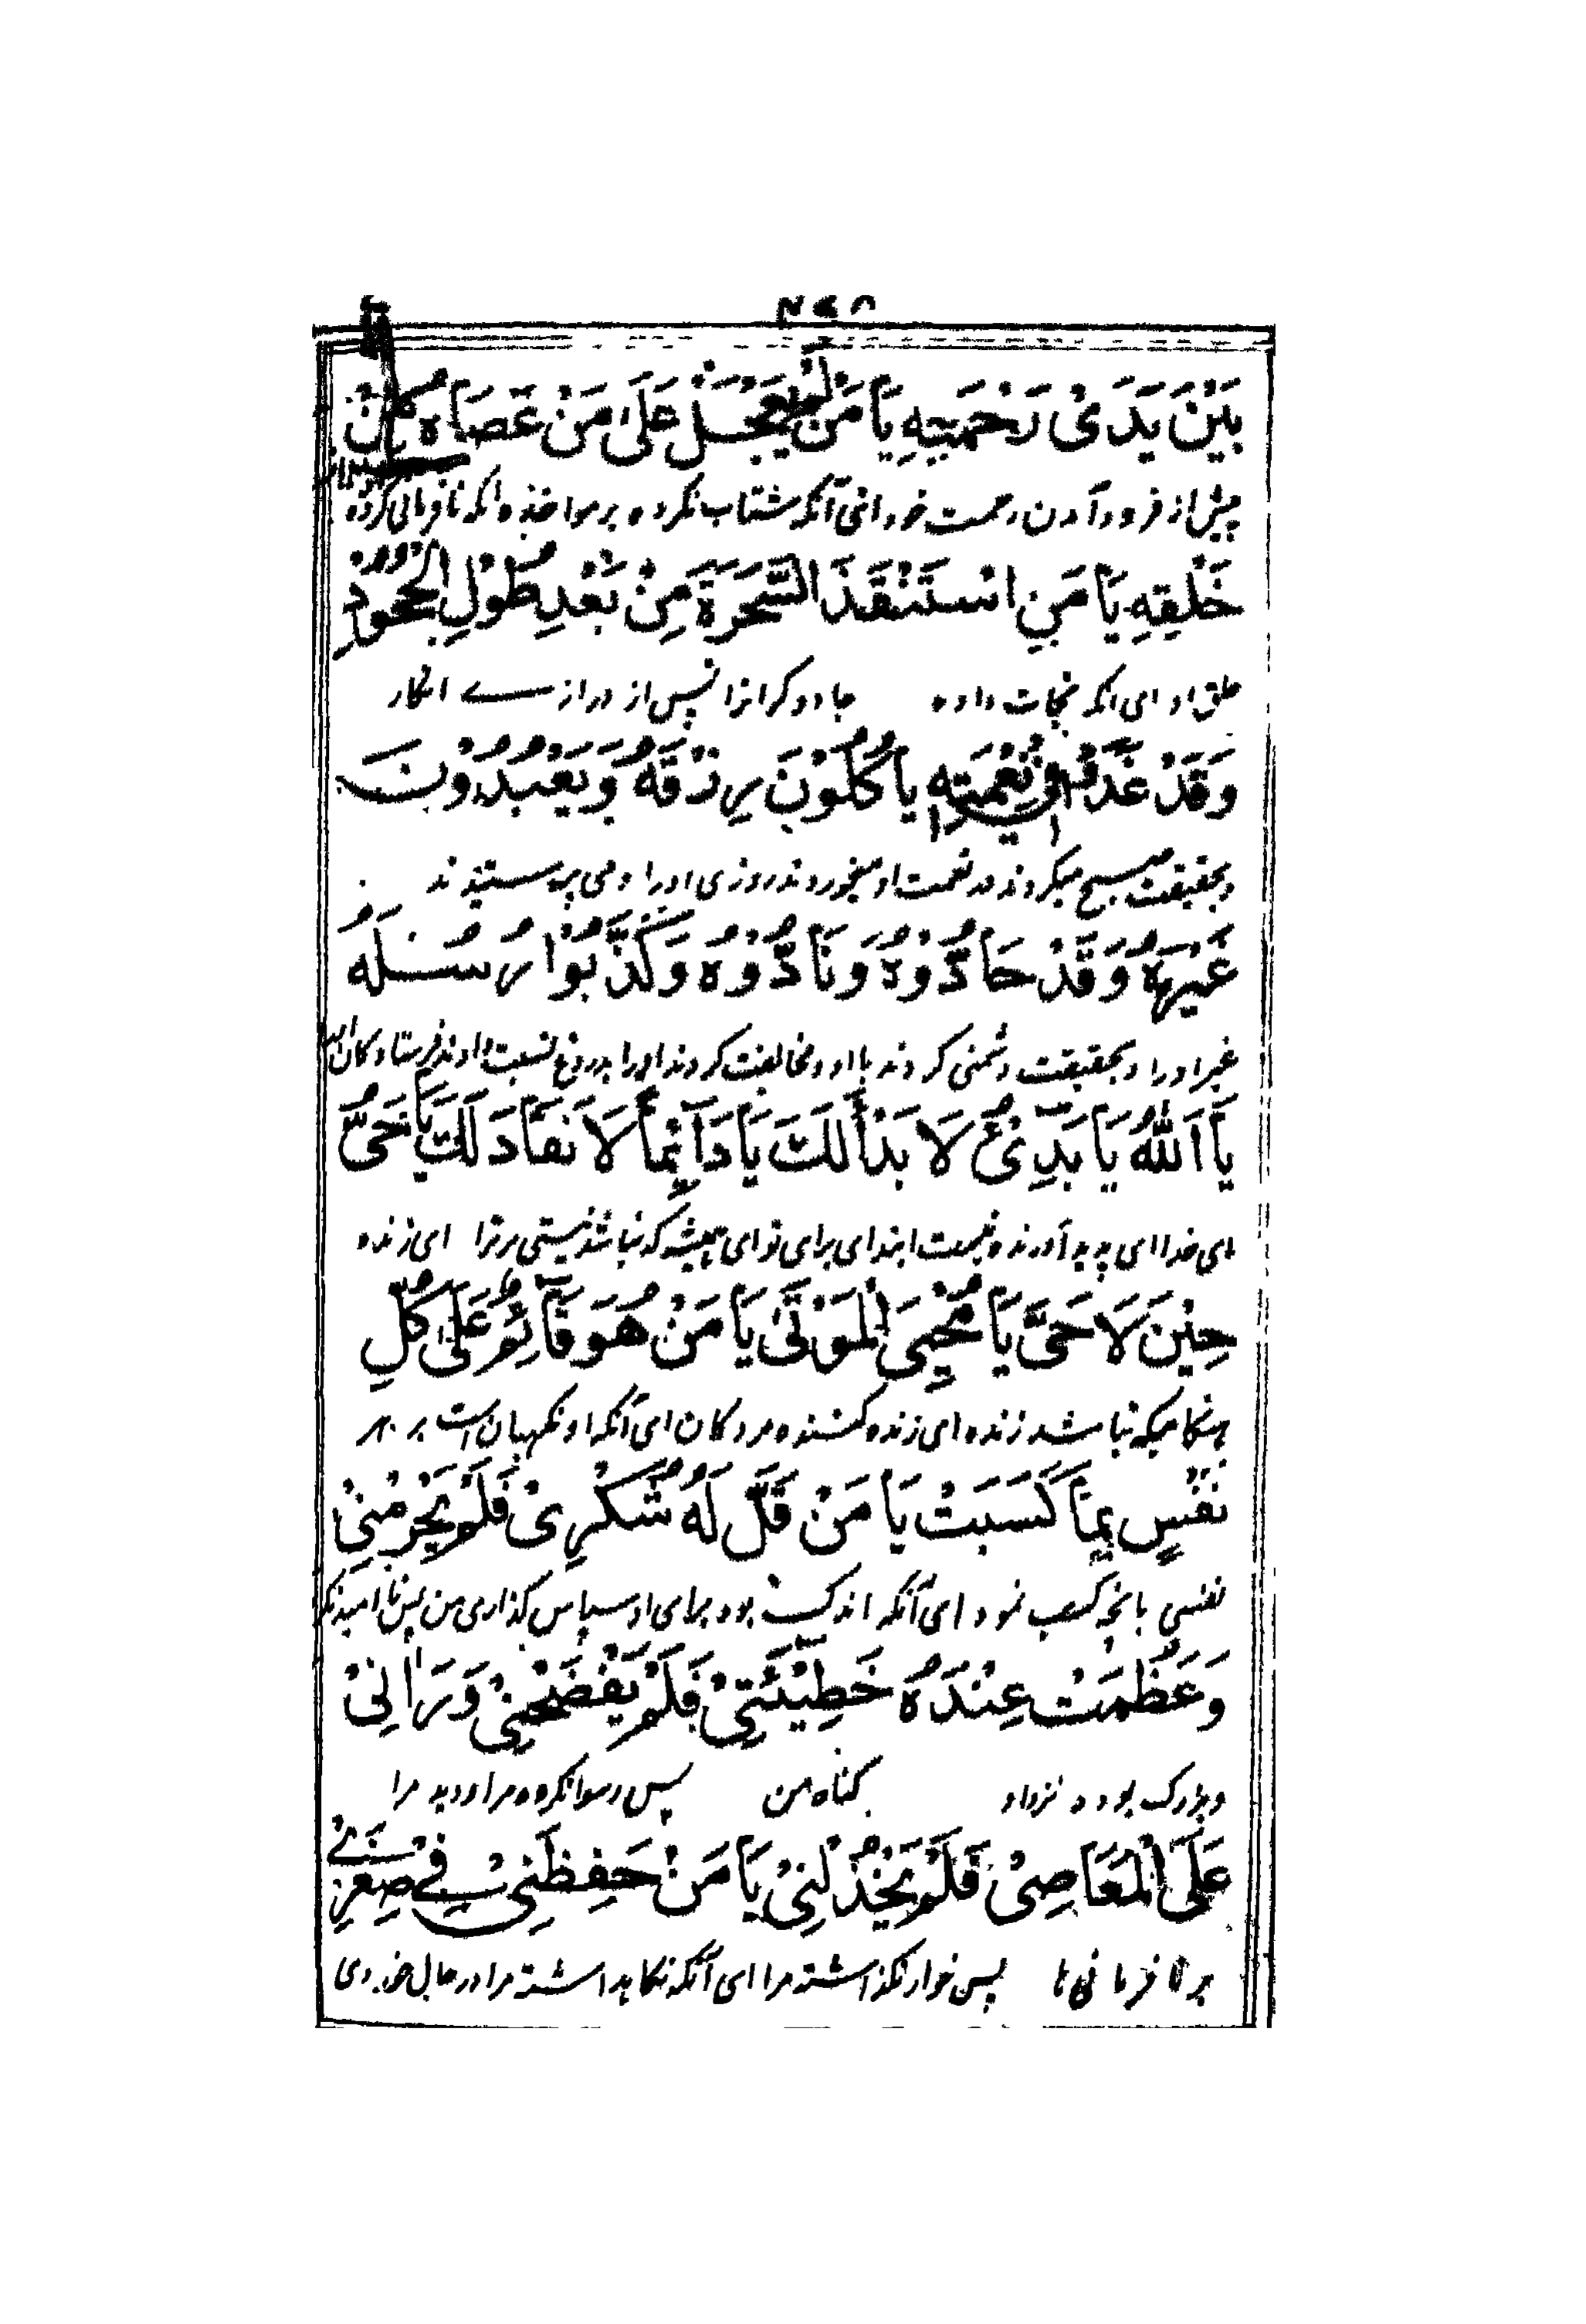 بَيْنَ يَدَىْ رَحْمَتِهِ يَا مَنْ لَمْ يَعْجَلْ عَلٰى مَنْ عَصَاهُ مِنْ
پیش از فرود آمدن رحمت خود ای آنکه شتاب نکرده بر مواخذه آنکه نافرمانی کرده
خَلْقِهِ يَا مَنِ اسْتَنْقَذَ السَّحَرَةَ مِنْ بَعْدِ طُوْلِ الْجُحُوْدِ
خلق او ای آنکه نجات داده جادوگرانرا پس از درازے انکار
وَقَدْ غَدَوْا فِيْ نِعْمَتِهِ يَأْكُلُوْنَ رِزْقَهُ وَيَعْبُدُوْنَ
و بحقیقت صبح میکردند در نعمت او میخوردند روزی او را و می پرستیدند
غَيْرَهُ وَقَدْ حَادُّوْهُ وَنَادُّوْهُ وَكَذَّبُوْا رُسُلَهُ
غیر او را و بحقیقت دشمنی کردند با او و مخالفت کردند او را و بدروغ نسبت دادند فرستادگان
يَا اَللّٰهُ يَا بَدِىْءُ لَا بَدْأَ لَكَ يَا دَآئِمًا لَا نَفَادَ لَكَ يَا حَىُّ
ای خدا ای پدید آورنده نیست ابتدای برای تو ای همیشه که نباشد نیستی مر ترا ای زنده
حِيْنَ لَا حَىَّ يَا مُحْيِىَ الْمَوْتٰى يَا مَنْ هُوَ قَآئِمٌ عَلٰى كُلِّ
هنگامیکه نباشد زنده ای زنده کننده مردگان ای آنکه او نگهبان است بر هر
نَفْسٍ بِمَا كَسَبَتْ يَا مَنْ قَلَّ لَهُ شُكْرِىْ فَلَمْ يَحْرِمْنِىْ
نفسی بانچه کسب نمود ای آنکه اندک بود برای او سپاس گذاری من پس نا امید نکرد
وَعَظُمَتْ عِنْدَهُ خَطِيْئَتِىْ فَلَمْ يَفْضَحْنِىْ وَرَاٰنِىْ
و بزرگ بوده نزد او گناه من پس رسوا نکرده مرا و دید مرا
عَلَى الْمَعَاصِىْ فَلَمْ يَخْذُلْنِىْ يَا مَنْ حَفِظَنِىْ فِىْ صِغَرِىْ
بر نا فرمانی ها پس خوار نگذاشته مرا ای آنکه نگاهداشته مرا در حال خوردی